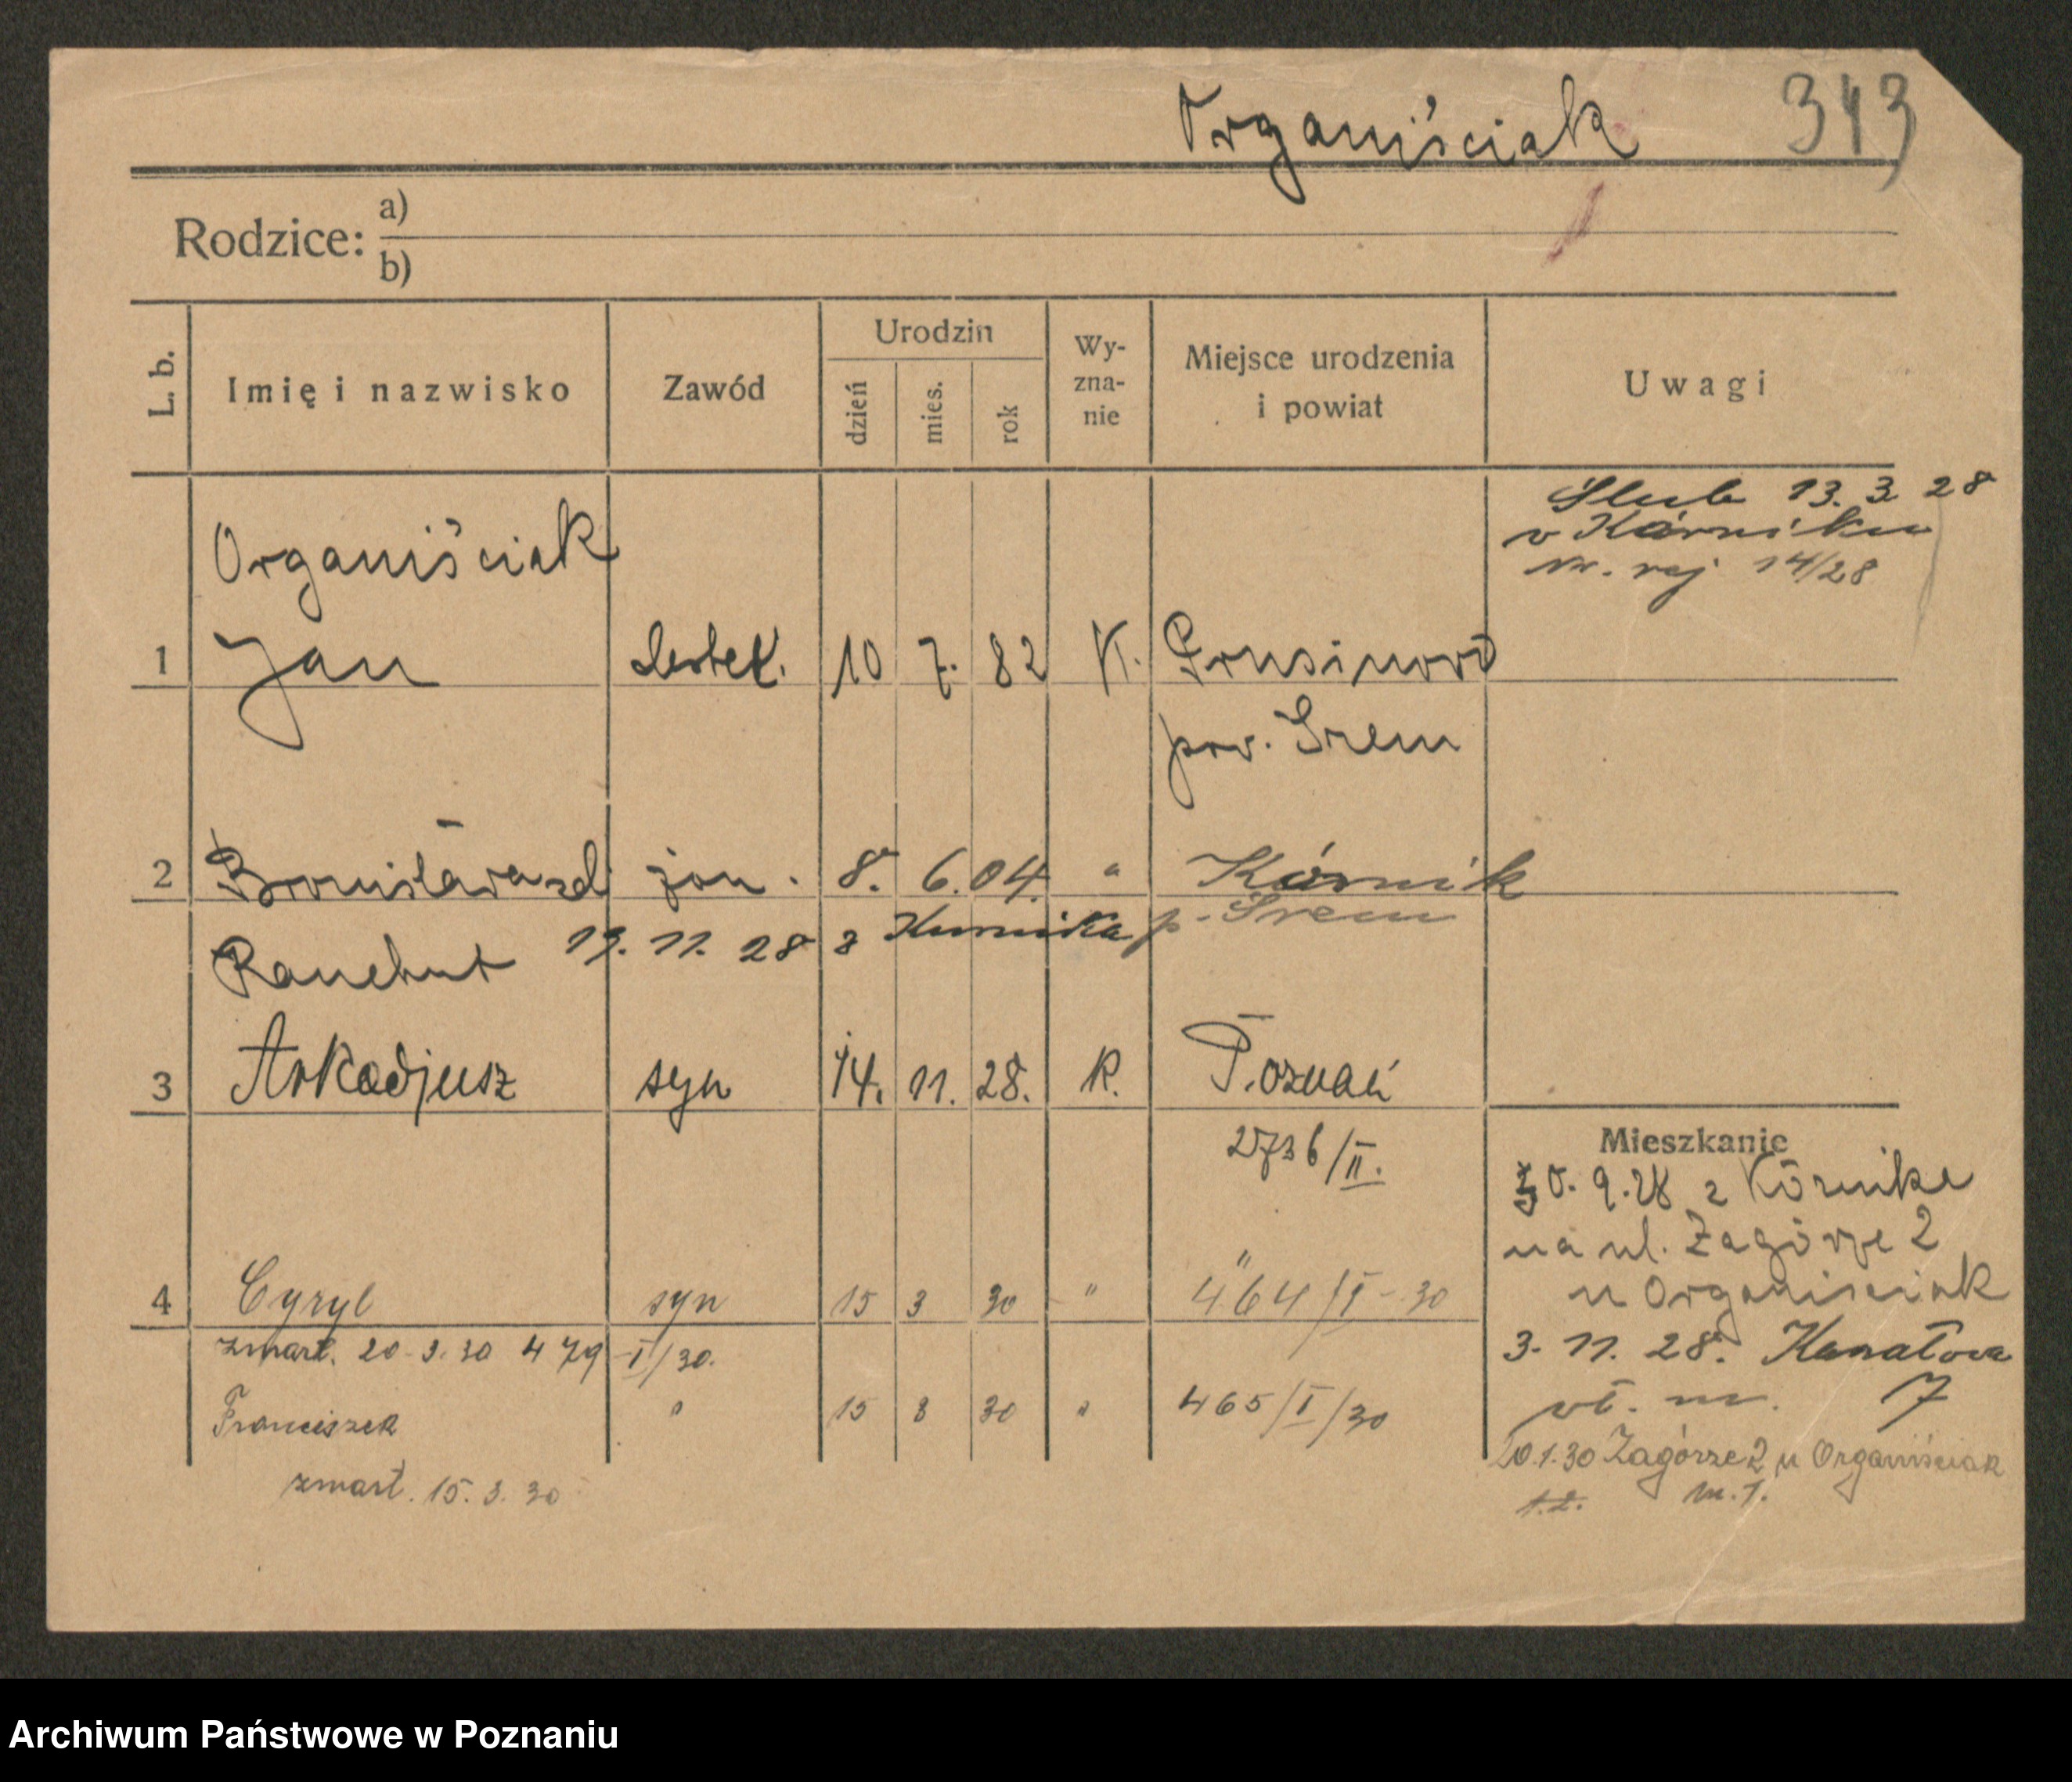 Organiściak 343
Rodzice: a)
b)
L. b. Imię i nazwisko Zawód Urodzin dzień mies. rok Wy-zna-nie Miejsce urodzenia i powiat Uwagi
Ślub 13. 3. 28
w Kórniku
nr. rej 14/28
Organiściak
1 Jan 10 7. 82 K.
pow. Śrem
2 Bronisława zd żon. 8. 6. 04. " Kórnik
p. Śrem
Ranchut 19. 11. 28 z Kurnika
3 Arkadjusz syn 14. 11. 28. R. Poznań
2736/II.
Mieszkanie
0. 9. 28 z Kórnika
na ul. Zagórze 2
u Organiściak
4 Cyryl syn 15 3 30 " "
464/I - 30
zmarł. 20-3.30 479 I/30.
3. 11. 28. Kanałowa
wł. m. 7
Franciszek " 15 3 30 " 465/I/30
20.1.30 Zagórze 2 u Organiściak
1.2. m. 1.
zmarł. 15. 3. 30
Archiwum Państwowe w Poznaniu